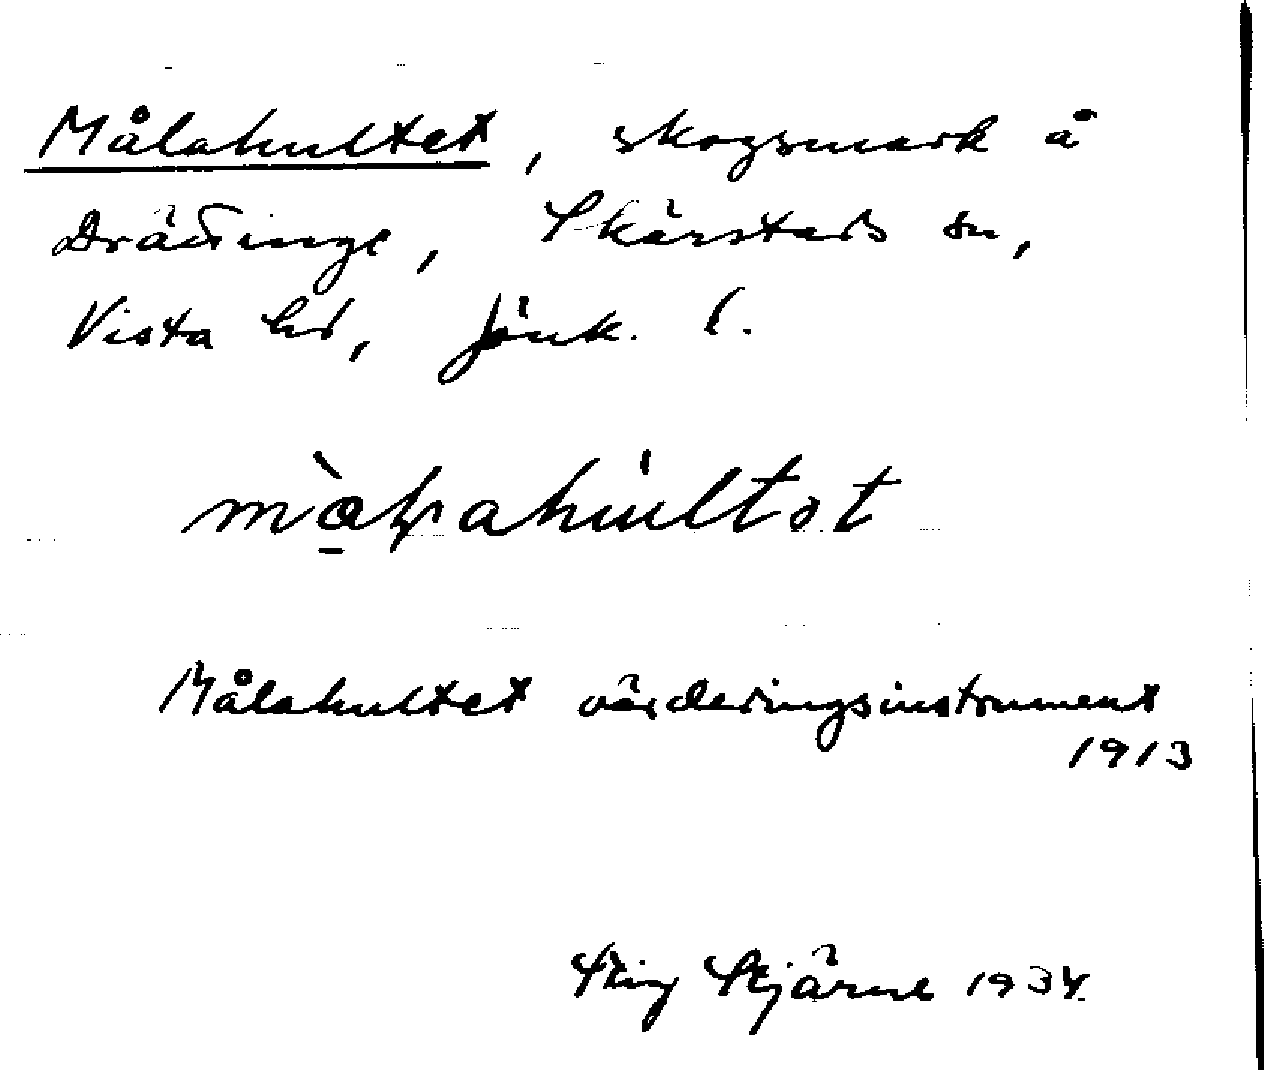 Målahultet, skogsmark å
Drättinge, Skärstads sn,
Vista hd, Jönk. l.
Målahultet värderingsinstrument
1913
Stig Stjärne 1934.